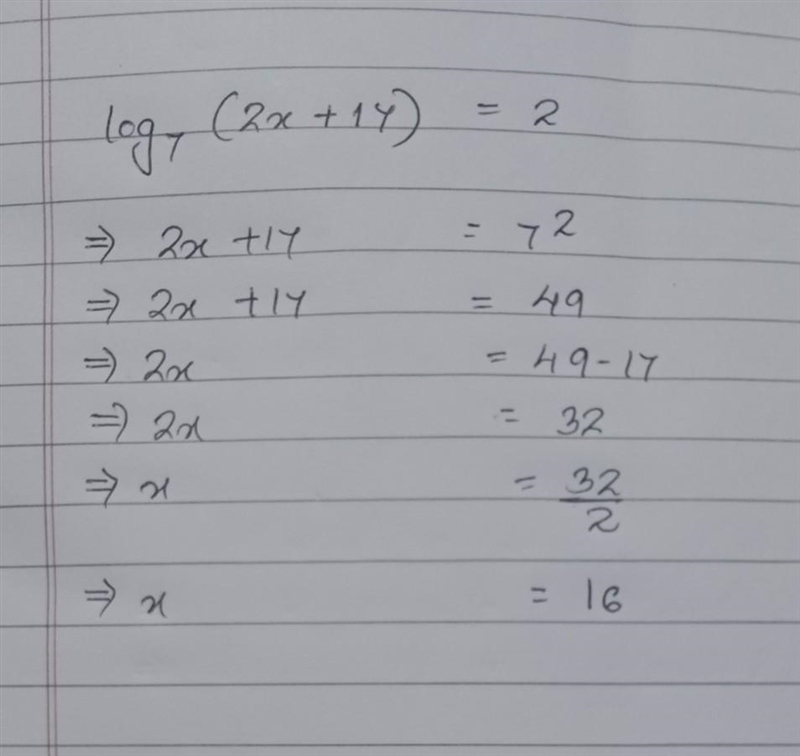 log₇ (2x + 17) = 2
⇒ 2x + 17 = 7²
⇒ 2x + 17 = 49
⇒ 2x = 49 - 17
⇒ 2x = 32
⇒ x = 32/2
⇒ x = 16